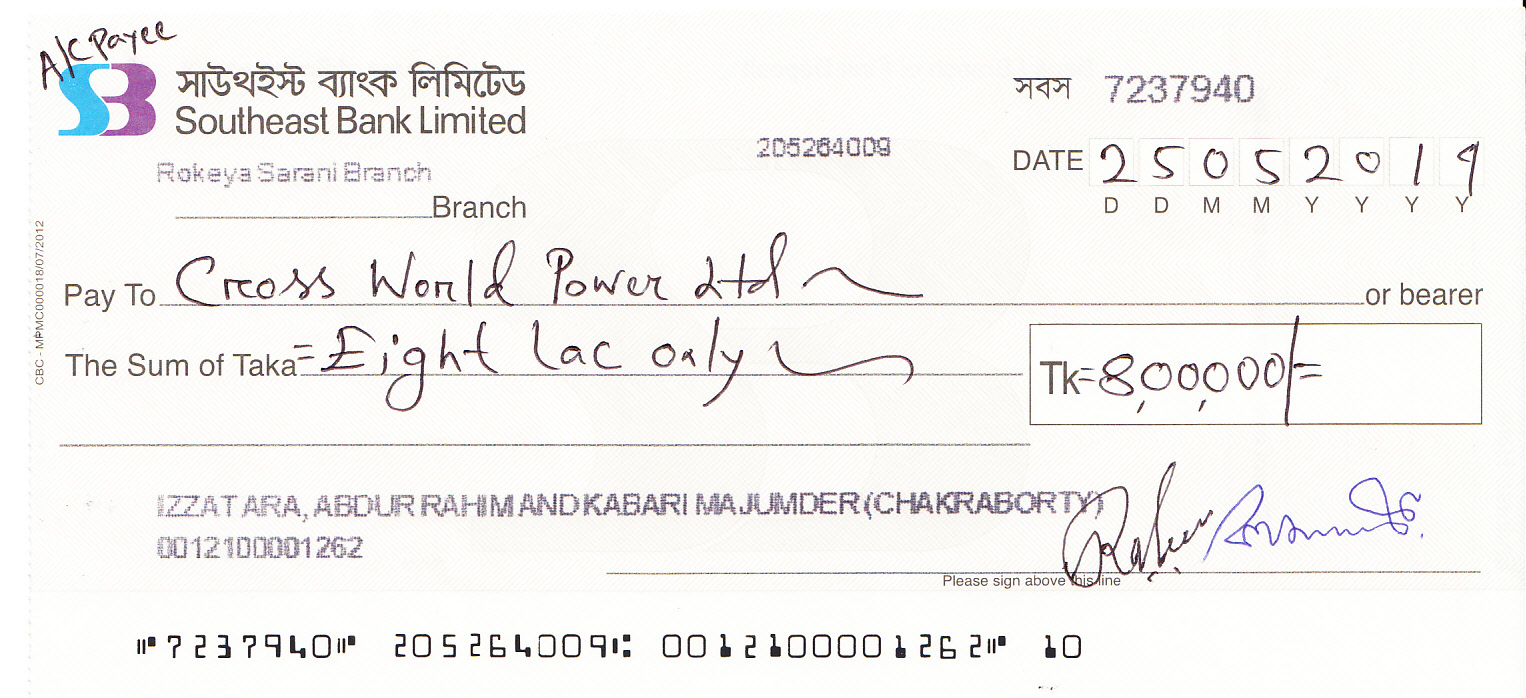 A/C Payee
SB
সাউথইস্ট ব্যাংক লিমিটেড
Southeast Bank Limited
সবস 7237940
205264009
Rokeya Sarani Branch
Branch
DATE 2 5 0 5 2 0 1 9
D D M M Y Y Y Y
CBC - MPMC000018/07/2012
Pay To Cross World Power Ltd or bearer
The Sum of Taka = Eight lac only
Tk=8,00,000/=
IZZAT ARA, ABDUR RAHIM AND KABARI MAJUMDER (CHAKRABORTY)
0012100001262
Please sign above this line
⑈7237940⑈ 205264009⑆ 0012100001262⑈ 10